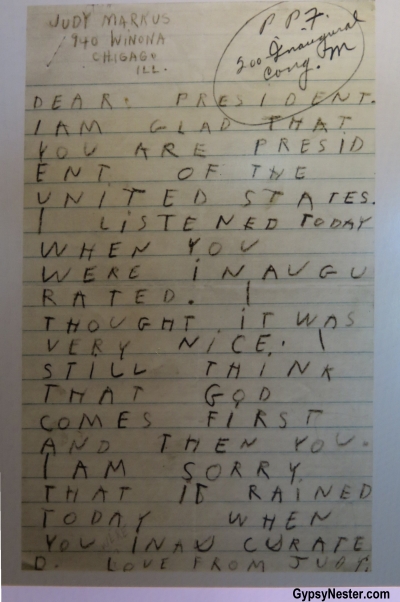 JUDY MARKUS
940 WINONA
CHICAGO
ILL.
P.P.F.
200 Inaugural
Cong. M
DEAR. PRESIDENT.
I AM GLAD THAT
YOU ARE PRESID
ENT OF THE
UNITED STATES.
I LISTENED TODAY
WHEN YOU
WERE INAUGU
RATED. I
THOUGHT IT WAS
VERY NICE. I
STILL THINK
THAT GOD
COMES FIRST
AND THEN YOU.
I AM SORRY
THAT IT RAINED
TODAY WHEN
YOU INAU CURATE
D. LOVE FROM JUDY.
GypsyNester.com